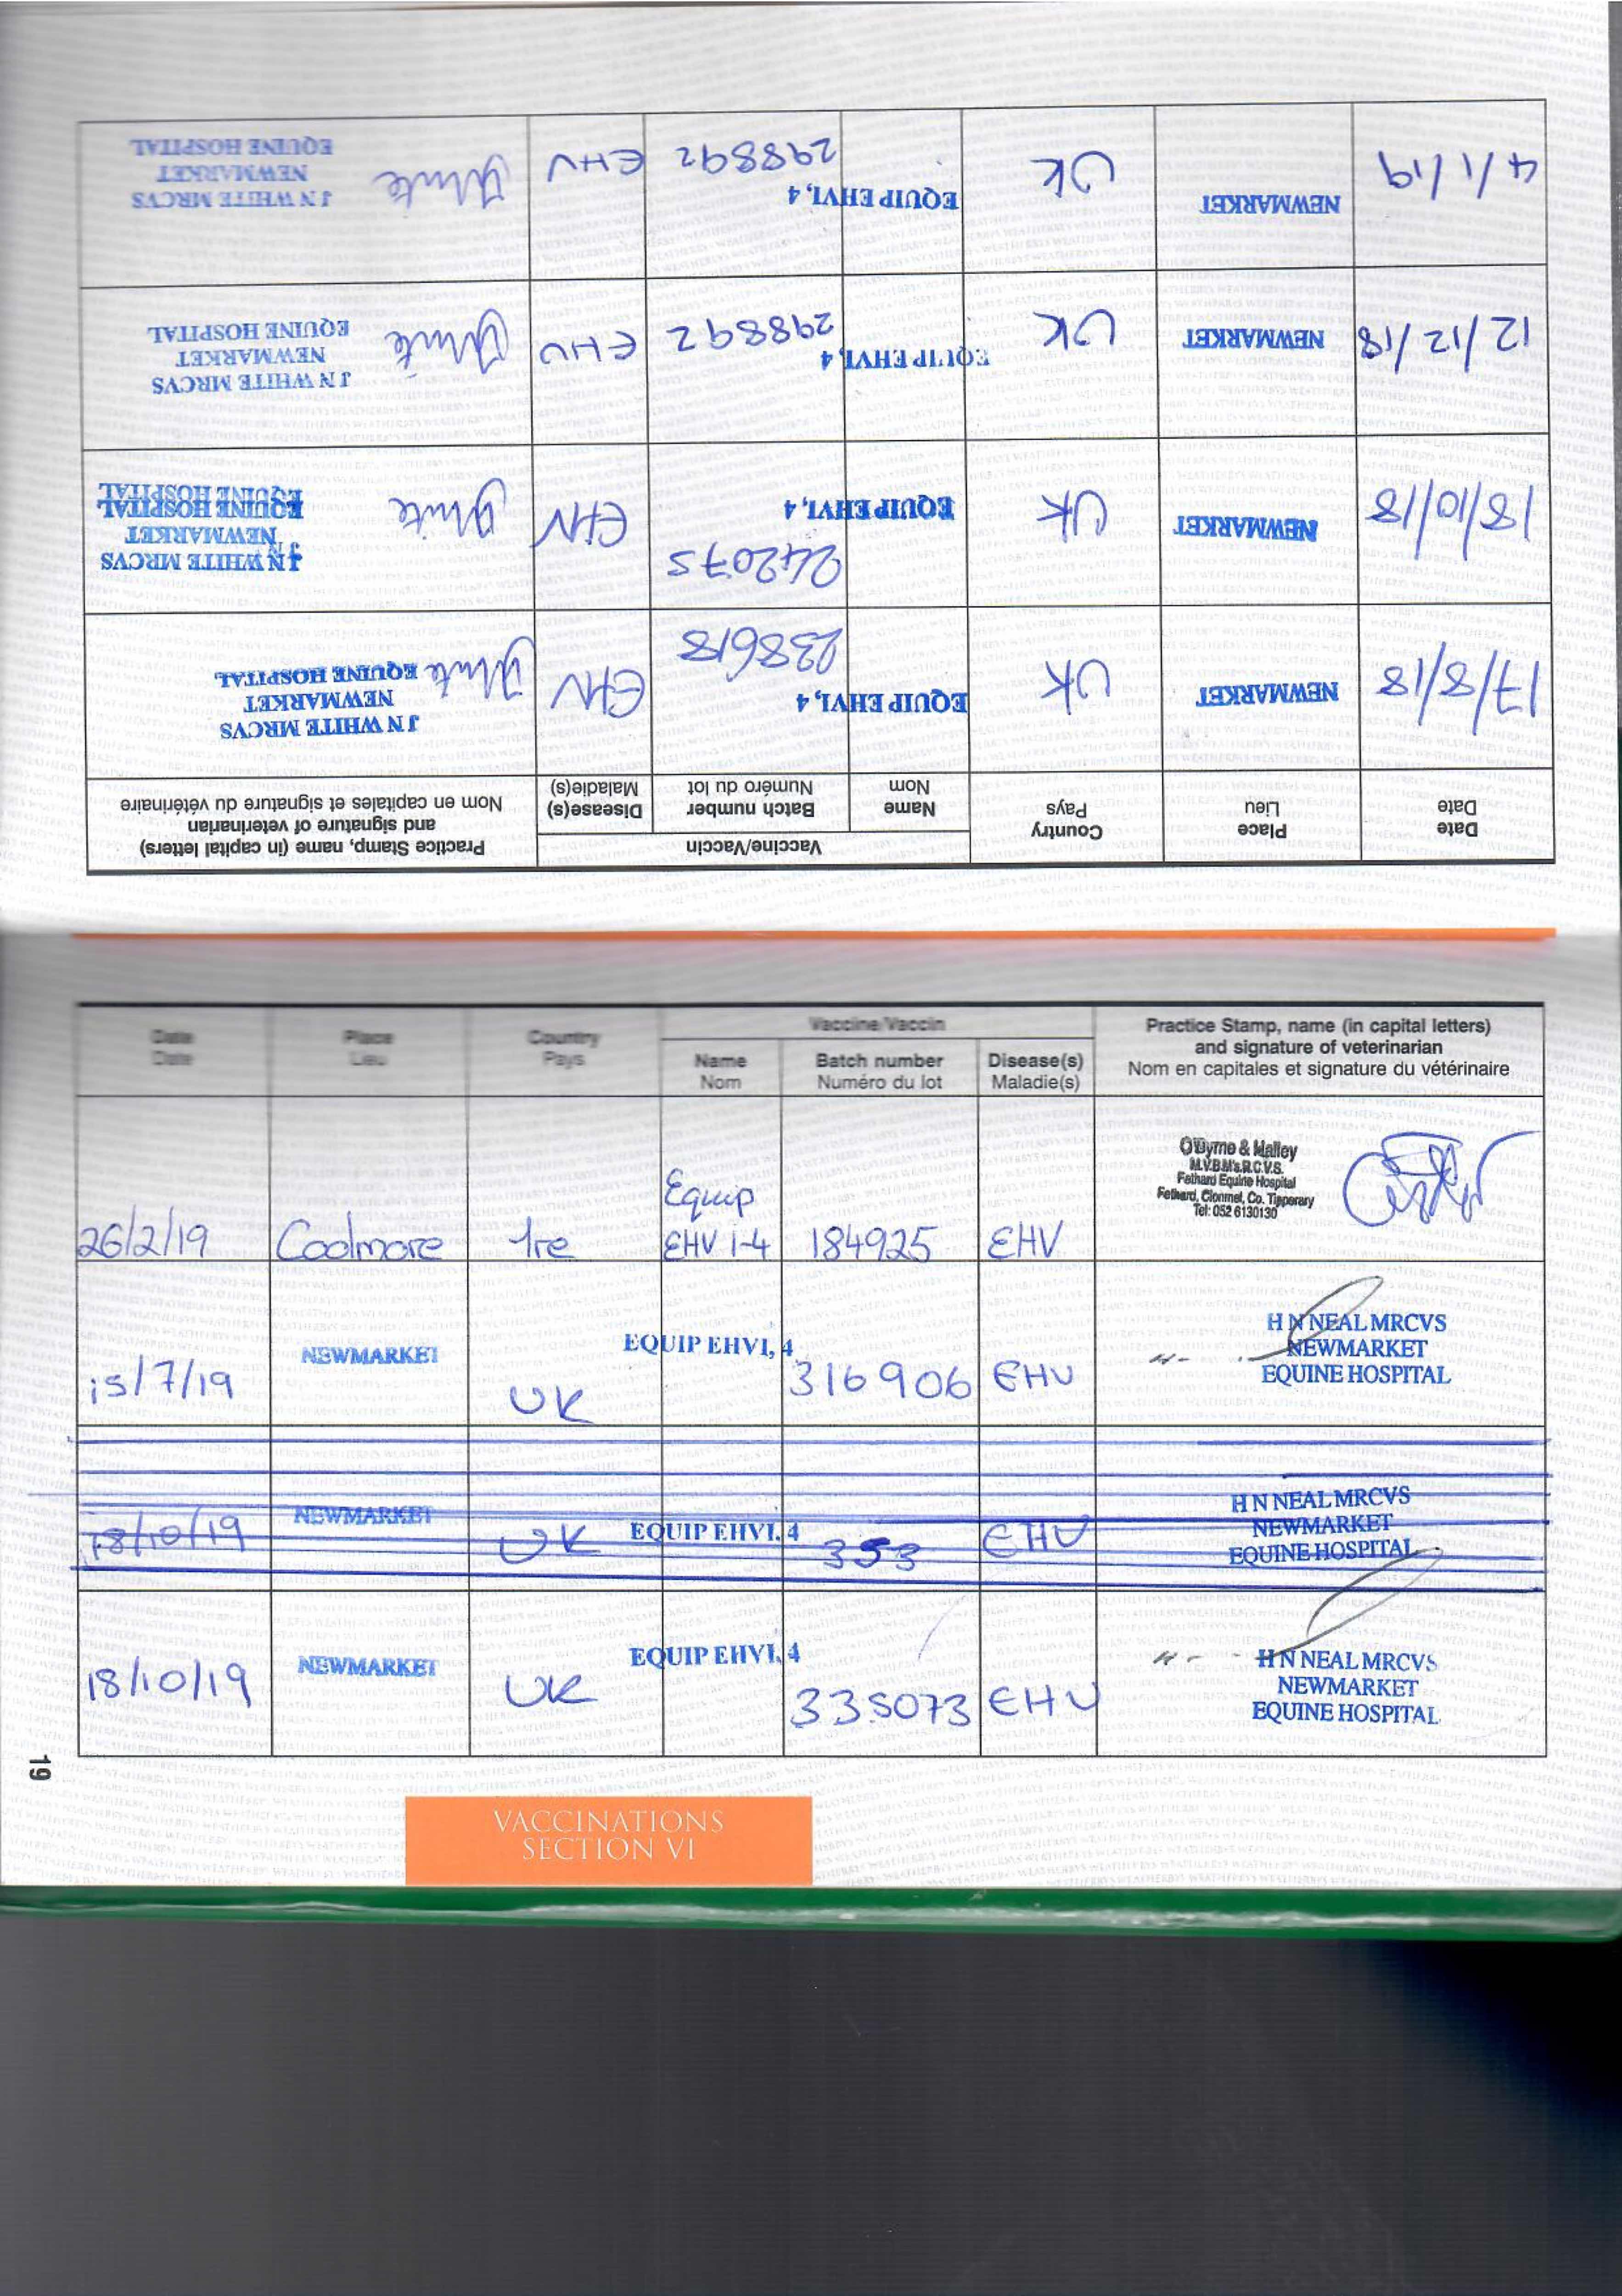 Date
Date
Place
Lieu
Country
Pays
Vaccine/Vaccin
Name
Nom
Batch number
Numéro du lot
Disease(s)
Maladie(s)
Practice Stamp, name (in capital letters)
and signature of veterinarian
Nom en capitales et signature du vétérinaire
17/8/18
NEWMARKET
UK
EQUIP EHV1, 4
238618
EHV
White
J N WHITE MRCVS
NEWMARKET
EQUINE HOSPITAL
18/10/18
NEWMARKET
UK
242075
EQUIP EHV1, 4
EHV
White
J N WHITE MRCVS
NEWMARKET
EQUINE HOSPITAL
EQUINE HOSPITAL
12/12/18
NEWMARKET
UK
EQUIP EHV1, 4
298892
EHV
White
J N WHITE MRCVS
NEWMARKET
EQUINE HOSPITAL
4/1/19
NEWMARKET
UK
EQUIP EHV1, 4
298892
EHV
White
J N WHITE MRCVS
NEWMARKET
EQUINE HOSPITAL
Date
Date
Place
Lieu
Country
Pays
Vaccine/Vaccin
Name
Nom
Batch number
Numéro du lot
Disease(s)
Maladie(s)
Practice Stamp, name (in capital letters)
and signature of veterinarian
Nom en capitales et signature du vétérinaire
26/2/19
Coolmore
Ire
Equip
EHV 1-4
184925
EHV
O'Byrne & Halley
M.V.B.M's.R.C.V.S.
Fethard Equine Hospital
Fethard, Clonmel, Co. Tipperary
Tel: 052 6130130
15/7/19
NEWMARKET
UK
EQUIP EHV1, 4
316906
EHV
H N NEAL MRCVS
NEWMARKET
EQUINE HOSPITAL
18/10/19
NEWMARKET
UK
EQUIP EHV1, 4
353
EHV
H N NEAL MRCVS
NEWMARKET
EQUINE HOSPITAL
18/10/19
NEWMARKET
UK
EQUIP EHV1, 4
335073
EHV
H N NEAL MRCVS
NEWMARKET
EQUINE HOSPITAL
19
VACCINATIONS
SECTION VI